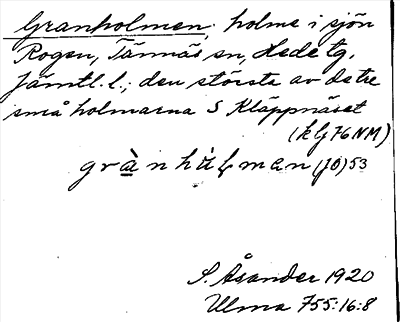 Granholmen, holme i sjön
Rogen, Tännäs sn, Hede tg,
Jämtl. l.; den största av de tre
små holmarna S Kläppnäset
(kG 76 NM)
grànhùɫman (JÖ) 53
S. Åsander 1920
Ulma 755:16:8